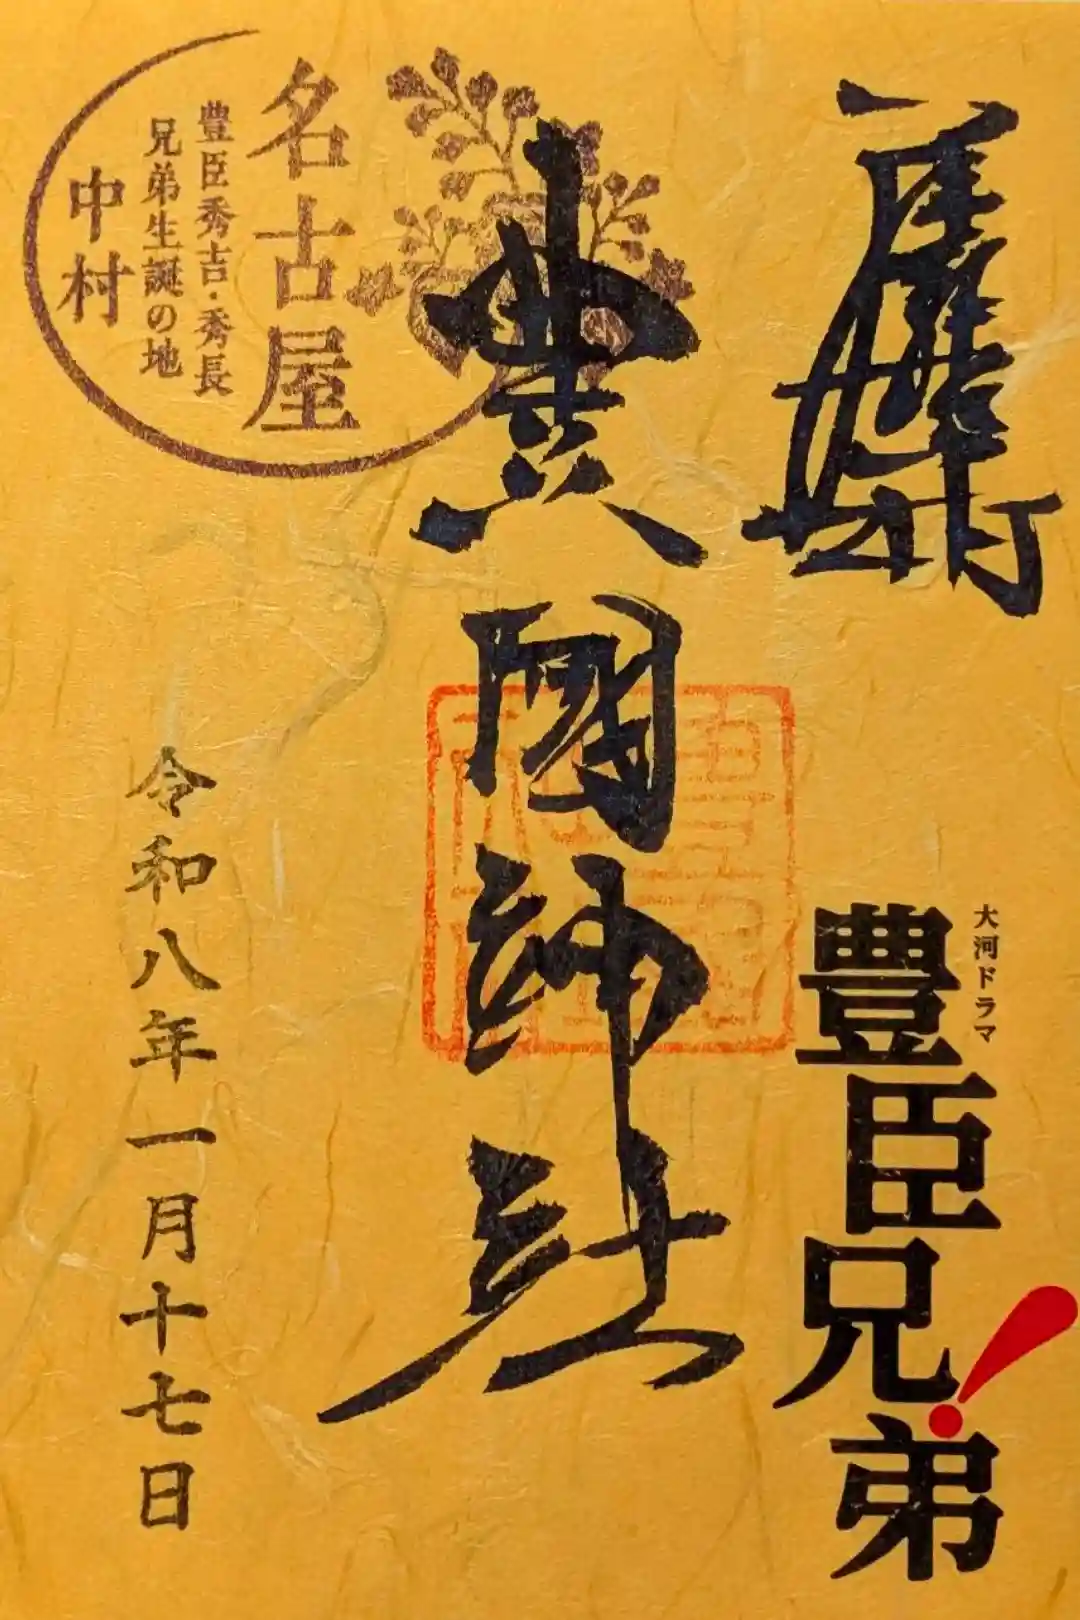 大河ドラマ
豊臣兄弟！
豊國神社
名古屋
豊臣秀吉・秀長
兄弟生誕の地
中村
令和八年一月十七日